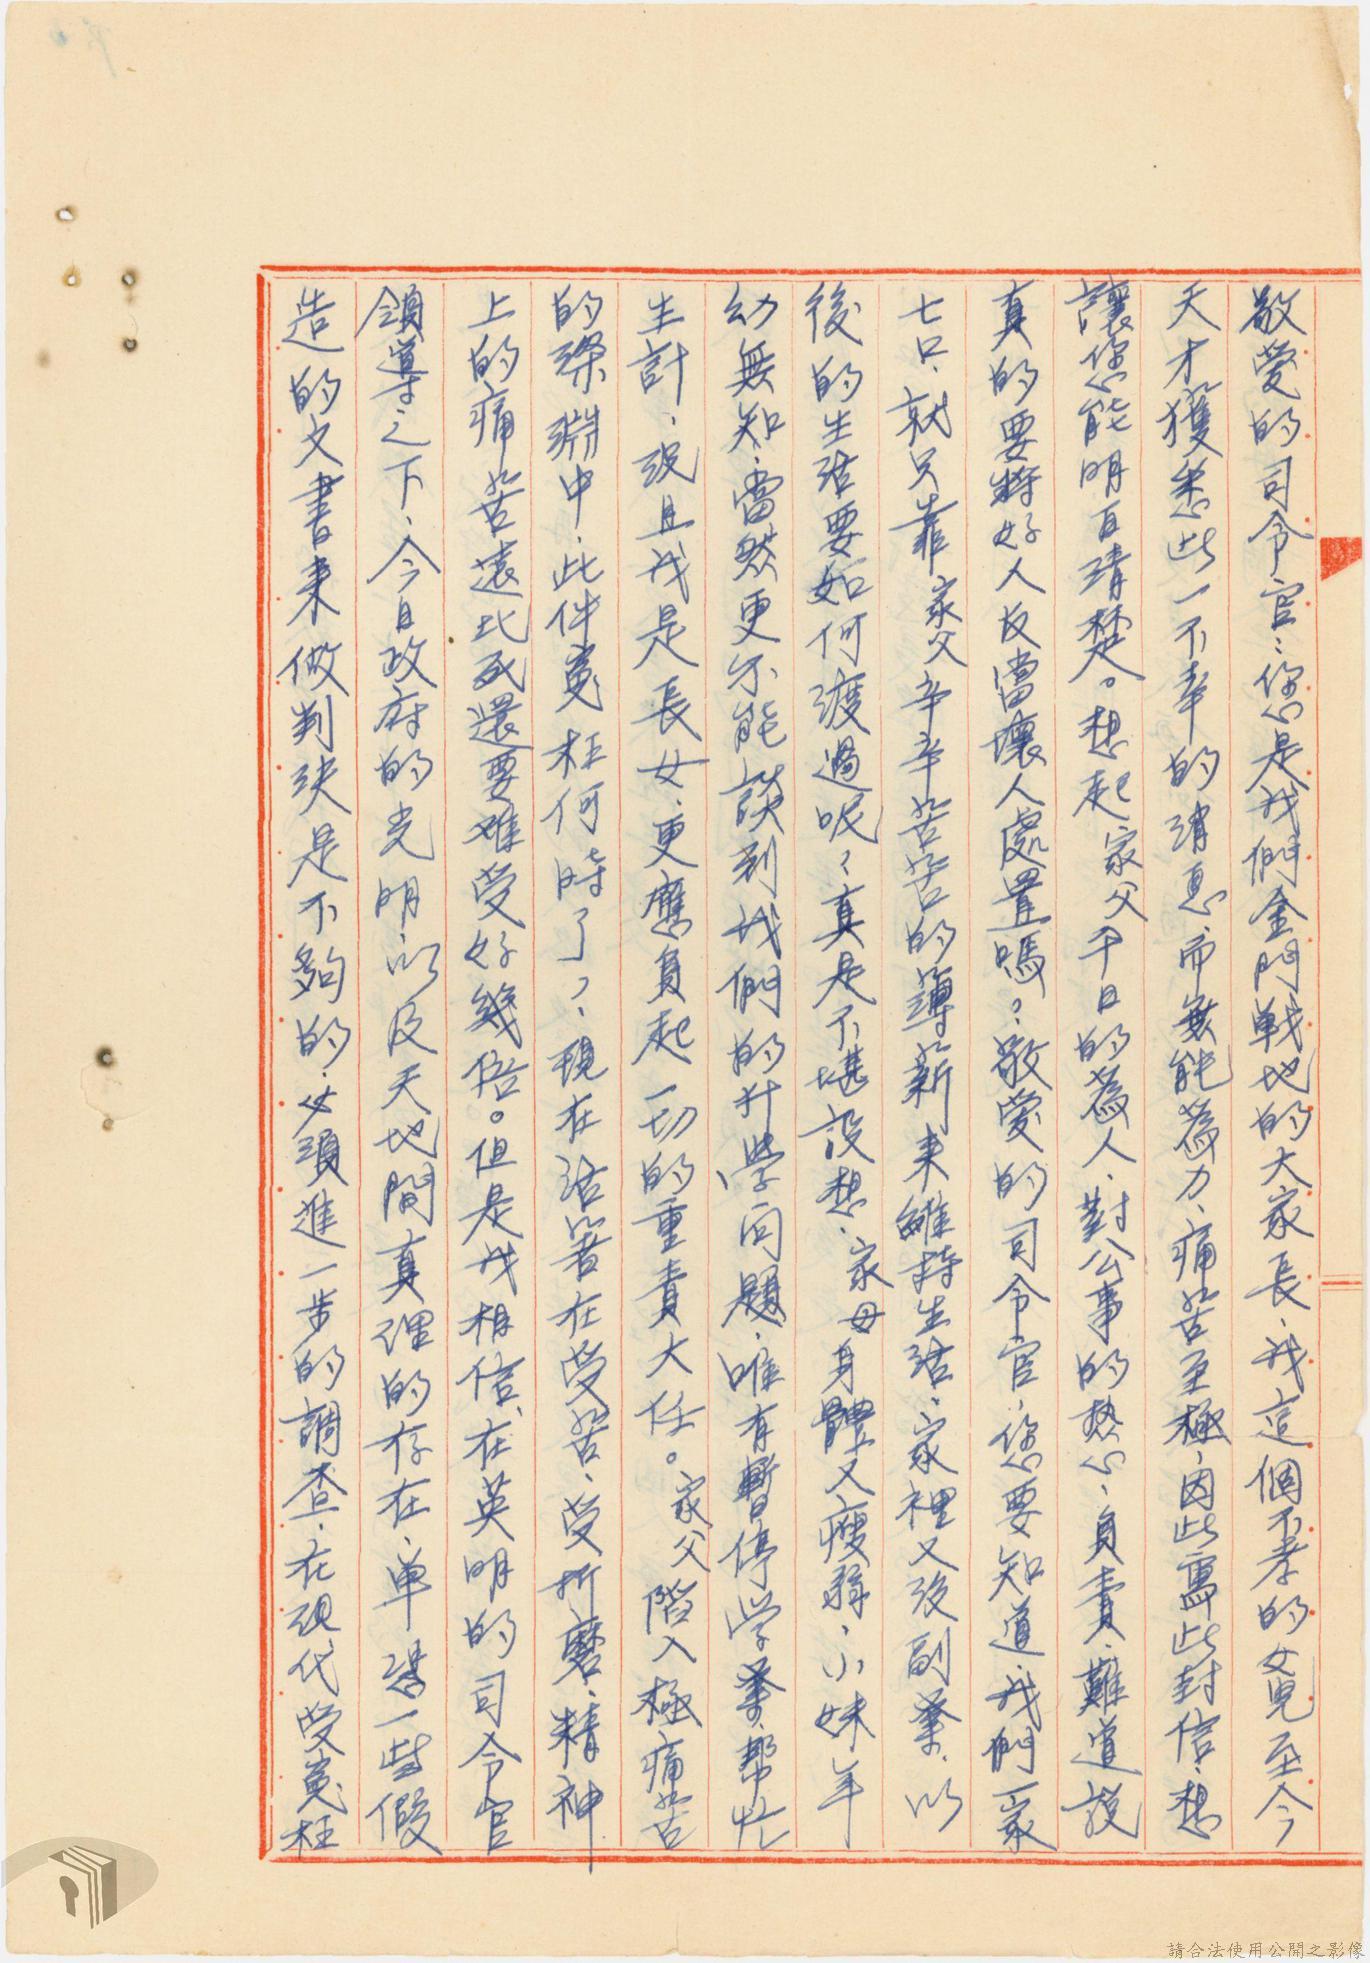 敬愛的司令官：您是我們金門戰地的大家長，我這個不孝的女兒至今
天才獲悉此一不幸的消息，而無能為力，痛苦至極，因此寫此封信，想
讓您能明白清楚。想起 家父平日的為人，對公事的熱心，負責，難道說
真的要將好人反當壞人處置嗎？敬愛的司令官，您要知道，我們一家
七口，就只靠 家父辛辛苦苦的薄薪來維持生活，家裡又沒副業，以
後的生活要如何渡過呢？真是不堪設想，家母身體又瘦弱，小妹年
幼無知，當然更不能談到我們的升學問題，唯有暫停學業，幫忙
生計，況且我是長女，更應負起一切的重責大任。家父陷入極痛苦
的深淵中，此件冤枉何時了？現在活著在受苦，受折磨，精神
上的痛苦遠比死還要难受好幾倍。但是我相信，在英明的司令官
領導之下，今日政府的光明，以及天地間真理的存在，单憑一些假
造的文書來做判決是不夠的，必須進一步的調查，在現代受冤枉
請合法使用公開之影像